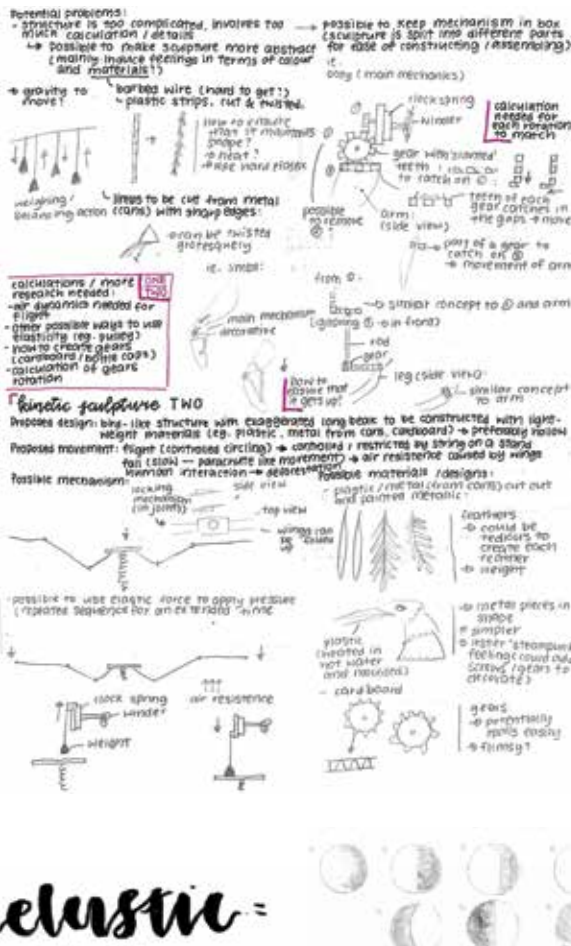 Potential problems:
- structure is too complicated, involves too much calculation / details
↳ possible to make sculpture more abstract (mainly induce feelings in terms of colour and materials!)
→ possible to keep mechanism in box (sculpture is split into different parts for ease of constructing / assembling)
i.e.
body (main mechanics)
→ gravity to move?
barbed wire (hard to get!)
plastic strips, cut & twisted.
how to ensure that it maintains shape?
→ heat?
→ use hard plastic
weighing / balancing action
limbs to be cut from metal (cans) with sharp edges:
→ can be twisted grotesquely
i.e. limbs:
main mechanism
decorative
clock spring
winder
calculation needed for each rotation to match
gear with slanted teeth
to catch on
possible to remove
arm:
(side view)
teeth of each gear catches in the gaps → move
part of a gear to catch on
→ movement of arm
from
→ similar concept to and arm
in front)
rod
gear
leg (side view)
similar concept to arm
how to ensure that it gets up?
calculations / more research needed:
ONE TWO
- air dynamics needed for flight
- other possible ways to use elasticity (eg. pulley)
- how to create gears (cardboard / bottle caps)
- calculation of gears rotation
kinetic sculpture TWO
Proposed design: bird-like structure with exaggerated long beak to be constructed with light-weight materials (eg. plastic, metal from cans, cardboard) → preferably hollow
Proposed movement: flight (controlled circling) → controlled / restricted by string on a stand
fall (slow - parachute like movement) → air resistance caused by wings
human interaction → deforestation
Possible mechanism:
locking mechanism (in joints)
side view
top view
→ wings can be folded up
Possible materials / designs:
- plastic / metal (from cans) cut out and painted metallic:
feathers
→ could be tedious to create each feather
→ weight
- possible to use elastic force to apply pressure (repeated sequence for an extended time
plastic (heated in hot water and moulded)
→ metal pieces in shape
simpler
→ lesser 'steampunk' feeling (could add screws / gears to decorate)
- cardboard
gears
→ potentially spoils easily
→ flimsy?
clock spring
winder
weight
air resistence
elastic =